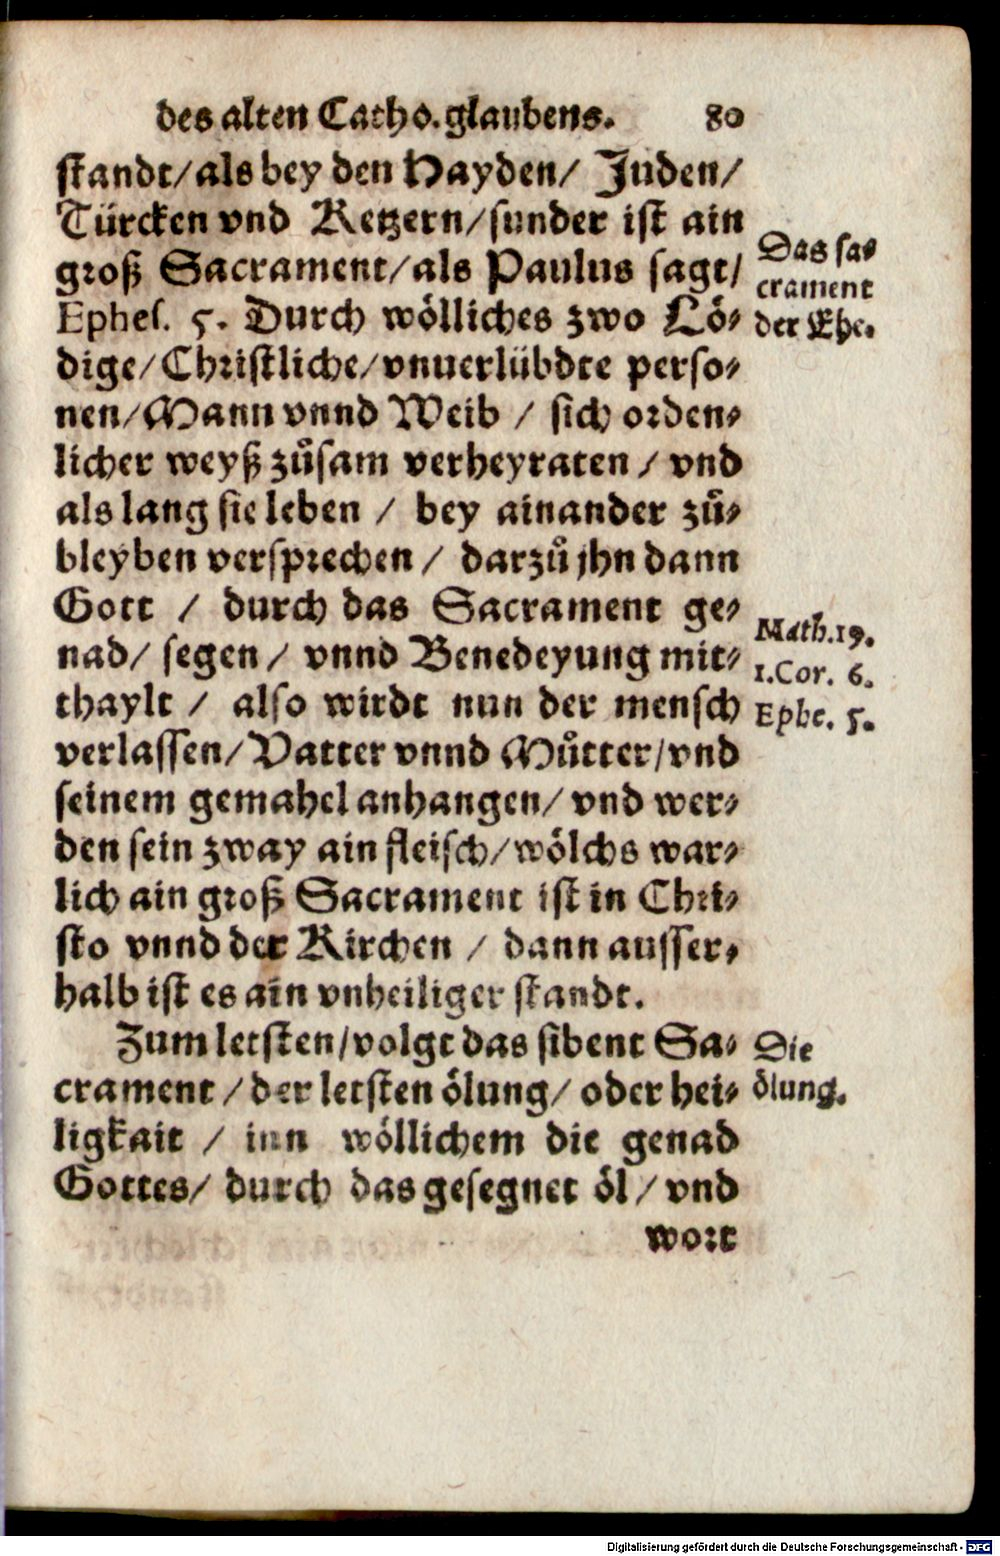 des alten Catho. glaubens. 80
standt/ als bey den Hayden/ Juden/
Türcken vnd Ketzern/ sunder ist ain
groß Sacrament/ als Paulus sagt/
Ephes. 5. Durch wölliches zwo Lö-
dige/ Christliche/ vnuerlübdte perso-
nen/ Mann vnnd Weib / sich orden-
licher weyß zůsam verheyraten / vnd
als lang sie leben / bey ainander zů-
bleyben versprechen / darzů jhn dann
Gott / durch das Sacrament ge-
nad/ segen / vnnd Benedeyung mit-
thaylt / also wirdt nun der mensch
verlassen/ Vatter vnnd Můtter/ vnd
seinem gemahel anhangen/ vnd wer-
den sein zway ain fleisch/ wölchs war-
lich ain groß Sacrament ist in Chri-
sto vnnd der Kirchen / dann ausser-
halb ist es ain vnheiliger standt.
Zum letsten/ volgt das sibent Sa-
crament / der letsten ölung/ oder hei-
ligkait / inn wöllichem die genad
Gottes/ durch das gesegnet öl / vnd
wort
Das sa-
crament
der Ehe.
Math. 19.
1. Cor. 6.
Ephe. 5.
Die
ölung.
Digitalisierung gefördert durch die Deutsche Forschungsgemeinschaft - DFG